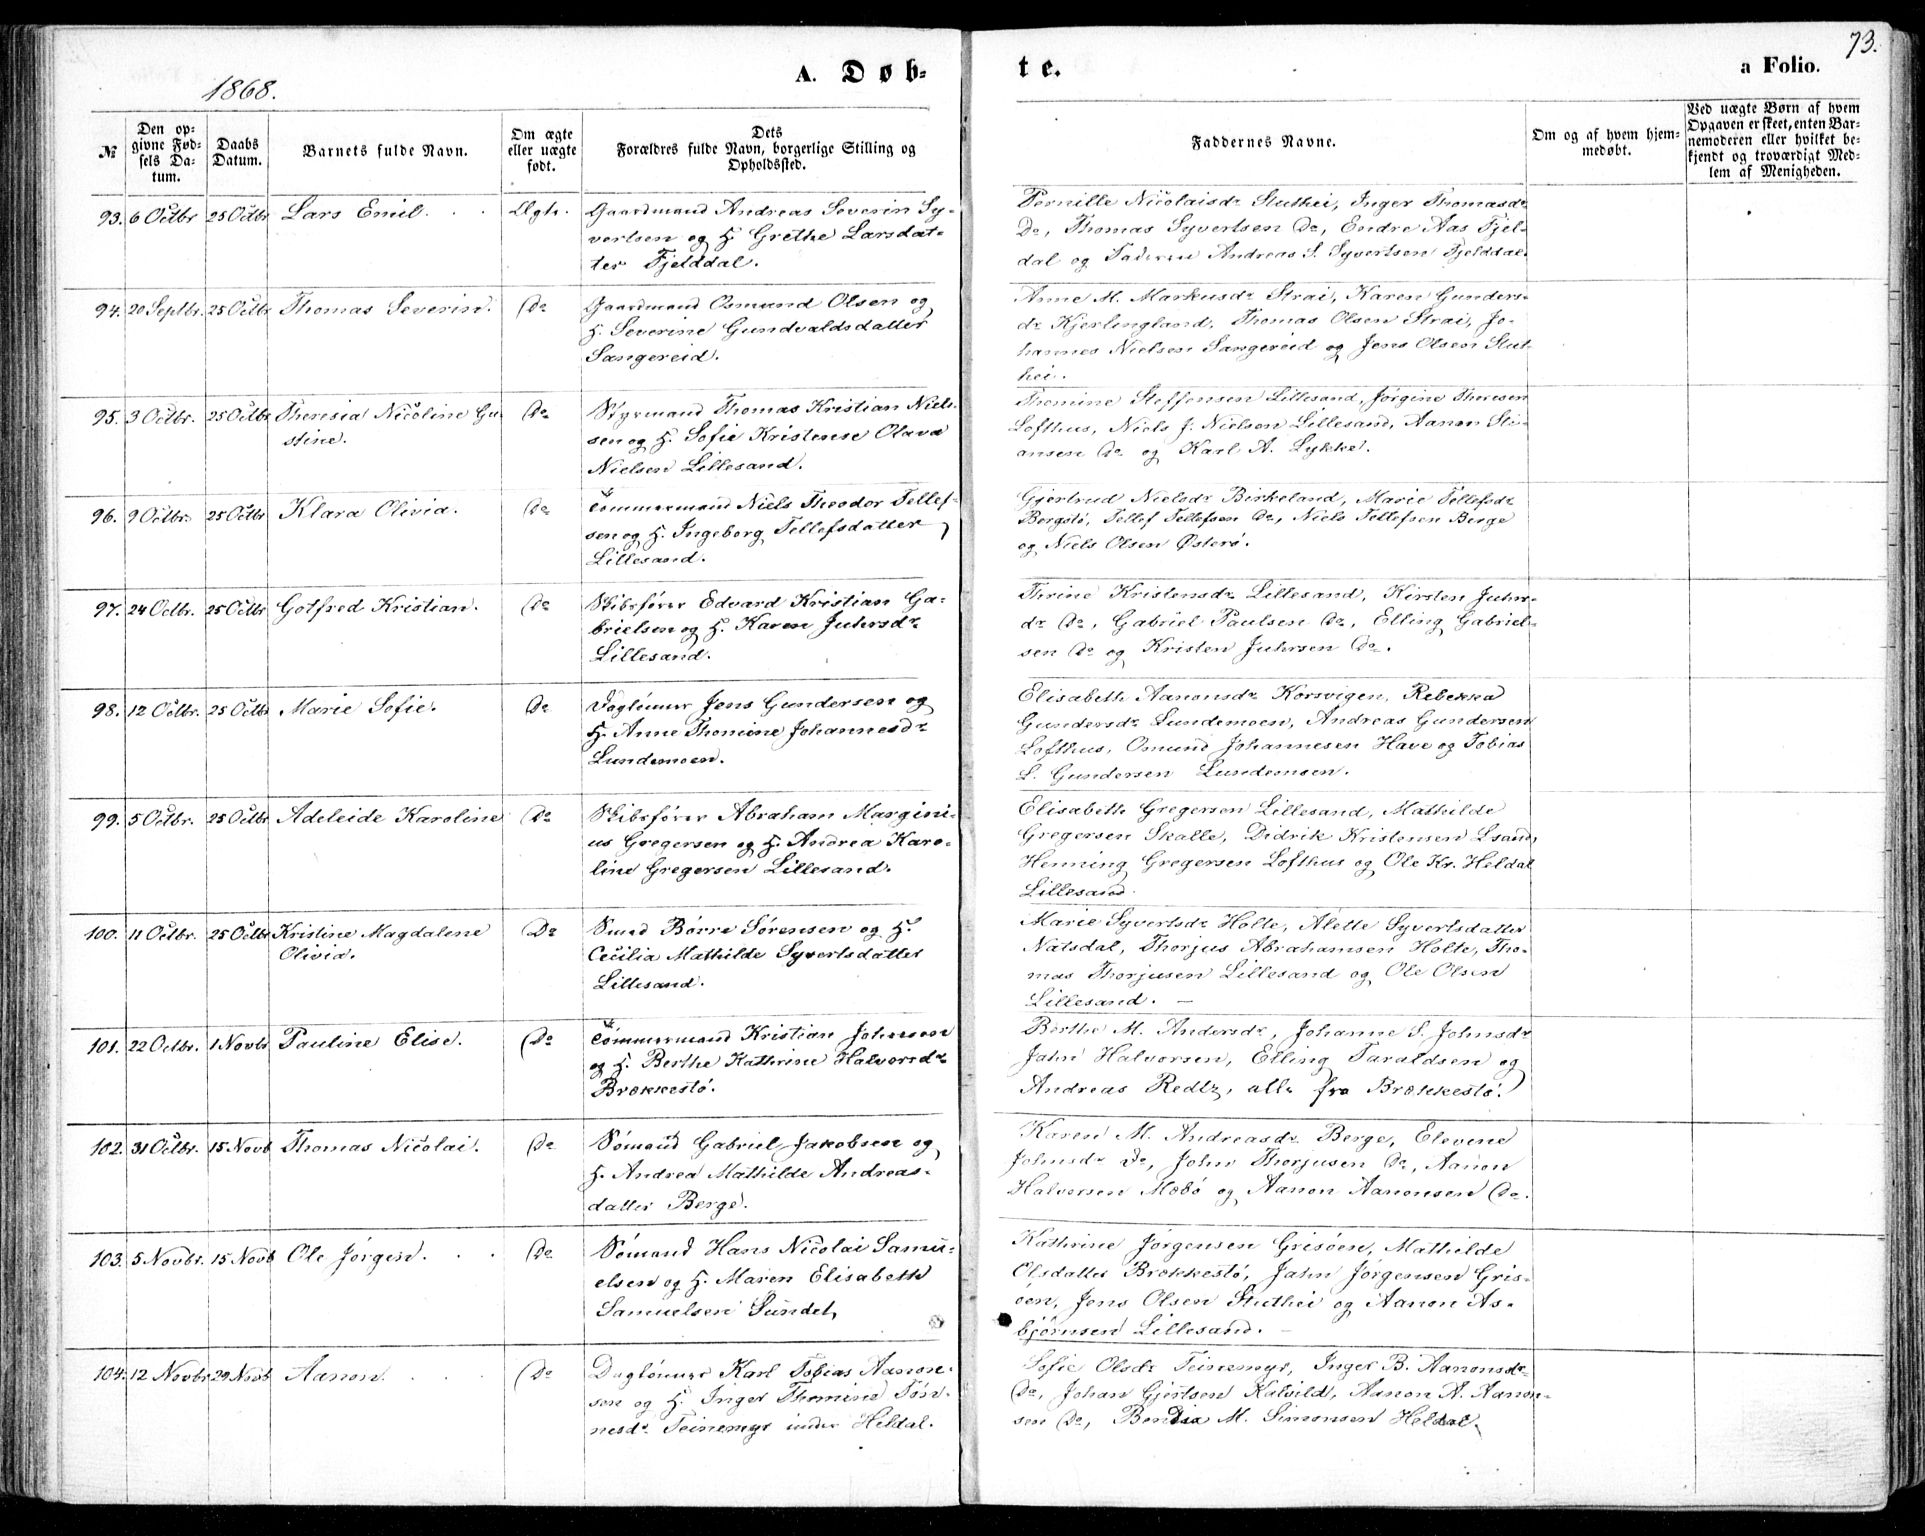 73.
1868.
A. Døb-
te.
a Folio.
№
Den op-
givne Fød-
sels Da-
tum.
Daabs
Datum.
Barnets fulde Navn.
Om ægte
eller uægte
født.
Dets
Forældres fulde Navn, borgerlige Stilling og
Opholdssted.
Faddernes Navne.
Om og af hvem hjem-
medøbt.
Ved uægte Børn af hvem
Opgaven er skeet, enten Bar-
nemoderen eller hvilket be-
kjendt og troværdigt Med-
lem af Menigheden.
93. 6 Octbr 25 Octbr Lars Emil. Ægte.
Gaardmand Andreas Severin Sy-
vertsen og H. Grethe Larsdat-
ter Fjelddal.
Pernille Nicolaisdr Stuthei, Inger Thomasdr
Do, Thomas Syvertsen Do, Endre Aas Fjel-
dal og Faderen Andreas S. Syvertsen Fjelddal.
94. 20 Septbr. 25 Octbr Thomas Severin. Do
Gaardmand Osmund Olsen og
H. Severine Gundvaldsdatter
Sangereid.
Anne M. Markusdr Strai, Karen Gunders-
dr Kjerlingland, Thomas Olsen Strai, Jo-
hannes Nielsen Sangereid og Jens Olsen Stut-
hei.
95. 3 Octbr. 25 Octbr Theresia Nicoline Gu-
stine. Do
Styrmand Thomas Kristian Niel-
sen og H. Sofie Kristense Olava
Nielsen Lillesand.
Thomine Steffensen Lillesand, Jørgine Theresen
Lofthus, Niels J. Nielsen Lillesand, Aanon Sti-
ansen Do og Karl A. Lykke.
96. 9 Octbr. 25 Octbr Klara Olivia. Do
Tømmermand Niels Theodor Tellef-
sen og H. Ingeborg Tellefsdatter
Lillesand.
Gjertrud Nielsdr Birkeland, Marie Tellefsdr
Bergstø, Tellef Tellefsen Do, Niels Tellefsen Berge
og Niels Olsen Østerø.
97. 24 Octbr. 25 Octbr Gotfred Kristian. Do
Skibsfører Edvard Kristian Ga-
brielsen og H. Karen Juhrsdr
Lillesand.
Thrine Kristensdr Lillesand, Kirsten Juhrs-
dr Do, Gabriel Paulsen Do, Elling Gabriel-
sen Do og Kristen Juhrsen Do.
98. 12 Octbr. 25 Octbr Marie Sofie. Do
Daglønner Jens Gundersen og
H. Anne Thomine Johannesdr
Lundemoen.
Elisabeth Aanonsdr Korsvigen, Rebekka
Gundersdr Lundemoen, Andreas Gundersen
Lofthus, Osmund Johannesen Have og Tobias
L. Gundersen Lundemoen.
99. 5 Octbr. 25 Octbr. Adeleide Karoline Do
Skibsfører Abraham Margini-
us Gregersen og H. Andrea Karo-
line Gregersen Lillesand.
Elisabeth Gregersen Lillesand, Mathilde
Gregersen Skalle, Didrik Kristensen Lsand,
Henning Gregersen Lofthus og Ole Kr. Heldal
Lillesand.
100. 11 Octbr. 25 Octbr Kristine Magdalene
Olivia. Do
Smed Børre Sørensen og H.
Cecilia Mathilde Syvertsdatter
Lillesand.
Marie Syvertsdr Holte, Alette Syvertsdatter
Natsdal, Thorjus Abrahamsen Holte, Tho-
mas Thorjusen Lillesand og Ole Olsen
Lillesand. —
101. 22 Octbr. 1 Novbr Pauline Elise. Do
Tømmermand Kristian Johnson
og H. Berthe Kathrine Halvorsdr
Brækkestø.
Berthe M. Andersdr, Johanne S. Johnsdr
Jahn Halvorsen, Elling Taraldsen og
Andreas Redtz, alle fra Brækkestø.
102. 31 Octbr. 15 Novb Thomas Nicolai. Do
Sømand Gabriel Jakobsen og
H. Andrea Mathilde Andreas-
datter Berge.
Karen M. Andreasdr Berge, Elevine
Johnsdr Do, John Thorjusen Do, Aanon
Halvorsen Mæbø og Aanon Aanonsen Do.
103. 5 Novbr. 15 Novb Ole Jørgen. Do
Sømand Hans Nicolai Samu-
elsen og H. Maren Elisabeth
Samuelsen Sundet,
Kathrine Jørgensen Grisøen, Mathilde
Olsdatter Brækkestø, Jahn Jørgensen Gris-
øen, Jens Olsen Stuthei og Aanon As-
bjørnsen Lillesand. —
104. 12 Novbr 29 Novb Aanon. Do
Daglønner Karl Tobias Aanon-
sen og H. Inger Thomine Tøn-
nesdr Teinemyr under Heldal.
Sofie Olsdr Teinemyr, Inger B. Aanonsdr
Do, Johan Gjertsen Kalvild, Aanon A. Aanon-
sen Do, Bendia M. Simonsen Heldal.